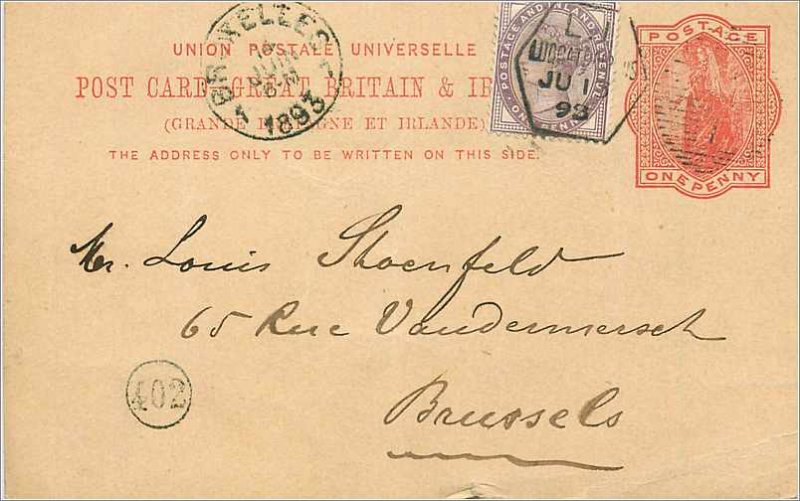 UNION POSTALE UNIVERSELLE
POST CARD GREAT BRITAIN &
(GRANDE ET IRLANDE)
THE ADDRESS ONLY TO BE WRITTEN ON THIS SIDE.
BRUXELLES
1893
POSTAGE AND INLAND REVENUE
ONE PENNY
L
JU
93
POSTAGE
ONE PENNY
Mr. Louis Shoenfeld
65 Rue Vandermersch
Brussels
402